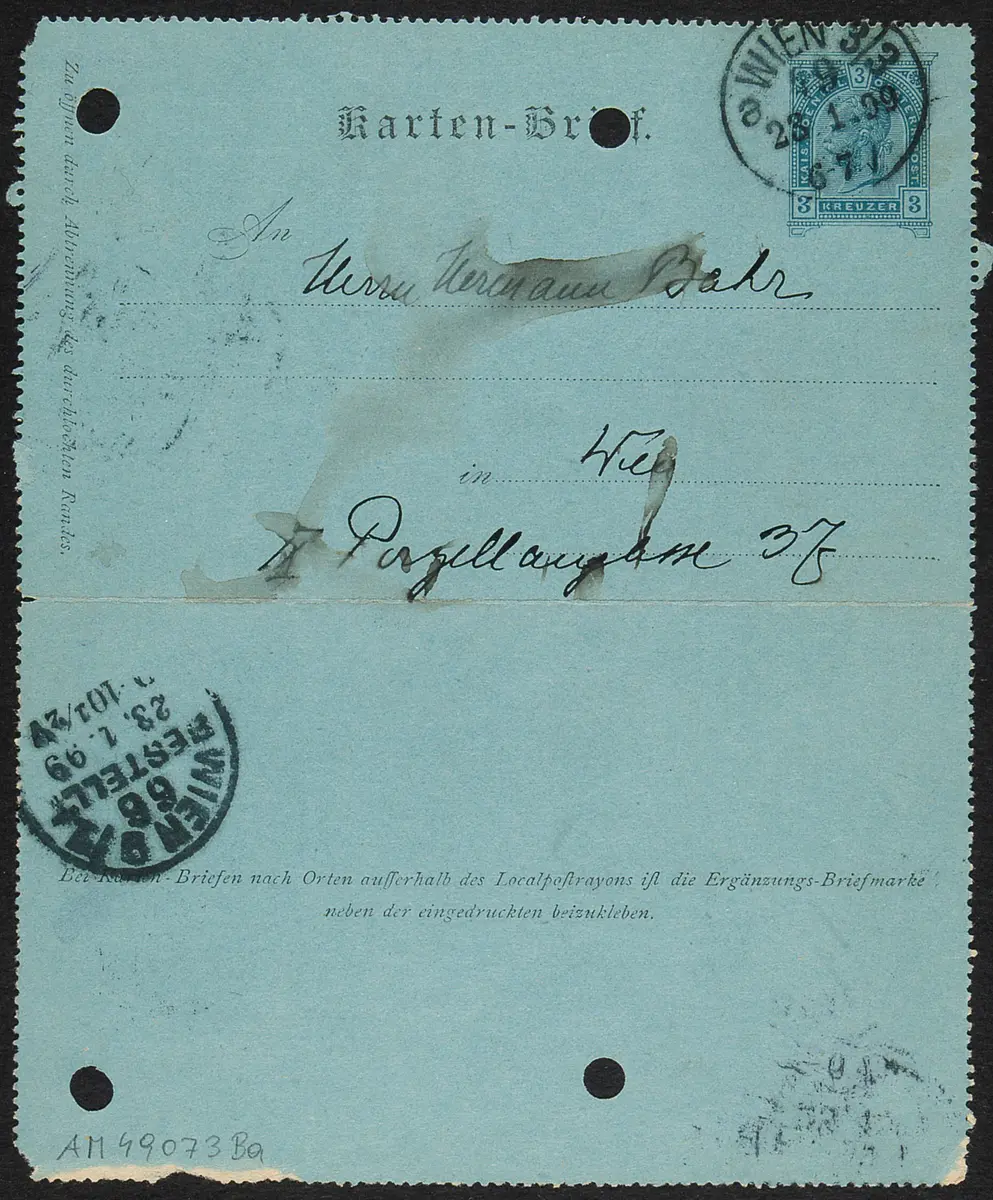 Zu öffnen durch Abtrennung des durchlochten Randes.
Karten-Br f.
WIEN 3/3
23. 1. 99
6-7
3
3 KREUZER 3
An
Herrn Hermann Bahr
in Wien
IX Porzellangasse 37
WIEN 9/1
66
BESTELLT
23. 1. 99
Bei Karten-Briefen nach Orten außerhalb des Localpostrayons ist die Ergänzungs-Briefmarke
neben der eingedruckten beizukleben.
AM 49073 Ba